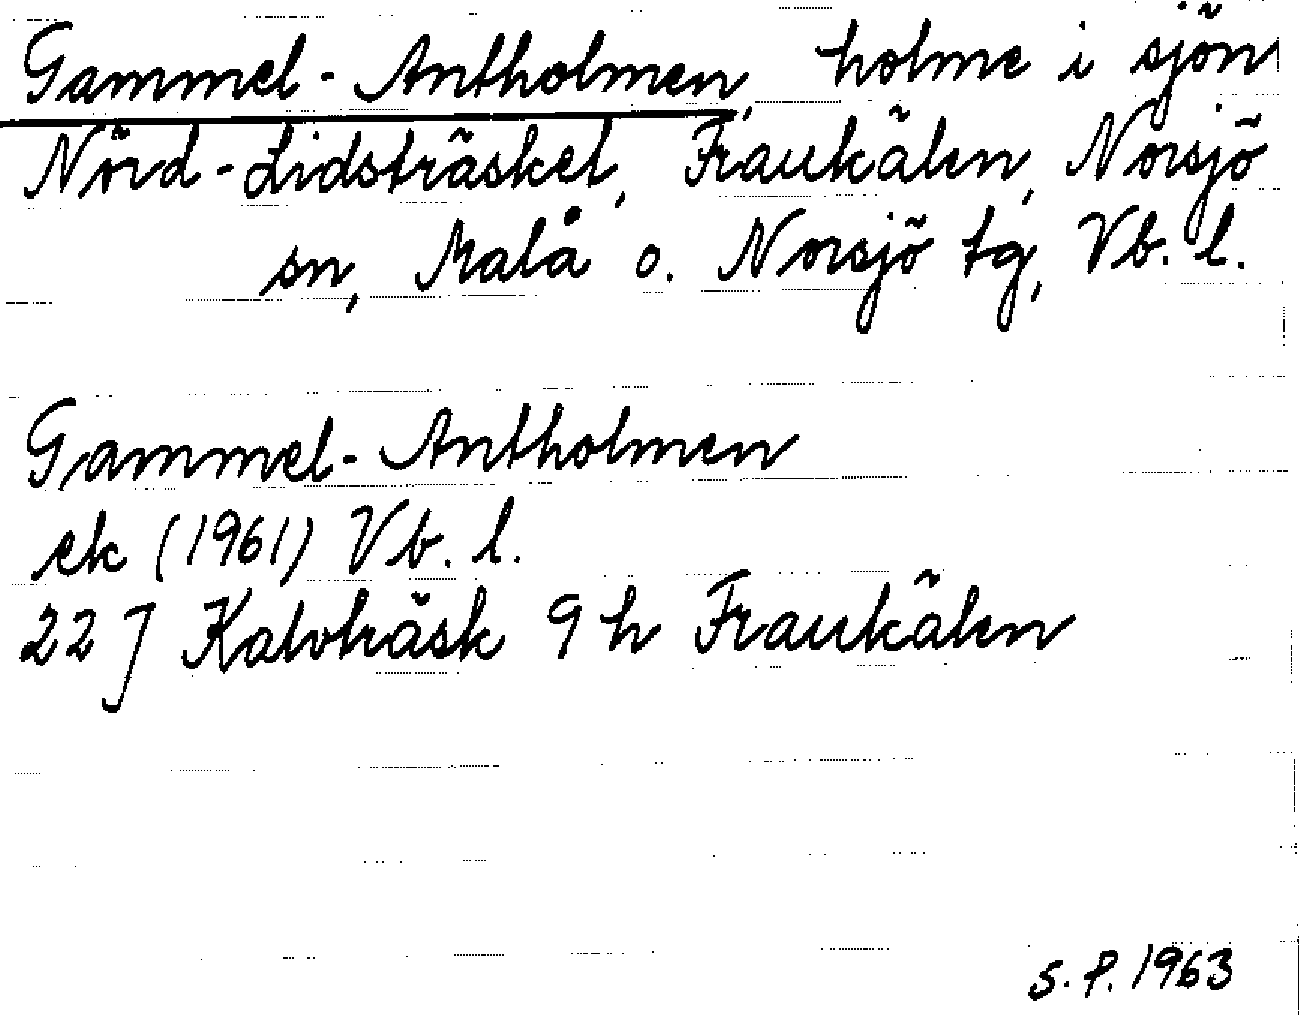 Gammel-Antholmen, holme i sjön
Nörd-Lidsträsket, Fraukälen, Norsjö
sn, Malå o. Norsjö tg, Vb. l.
Gammel-Antholmen
ek (1961) Vb. l.
22 J Kalvträsk 9 h Fraukälen
S. P. 1963